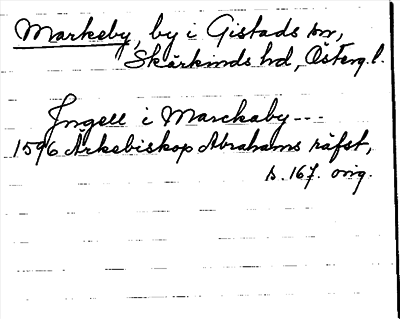 Markeby, by i Gistads sn,
Skärkinds hd, Österg. l.
Ingell i Marckaby ---
1596 Ärkebiskop Abrahams räfst,
s. 167. orig.